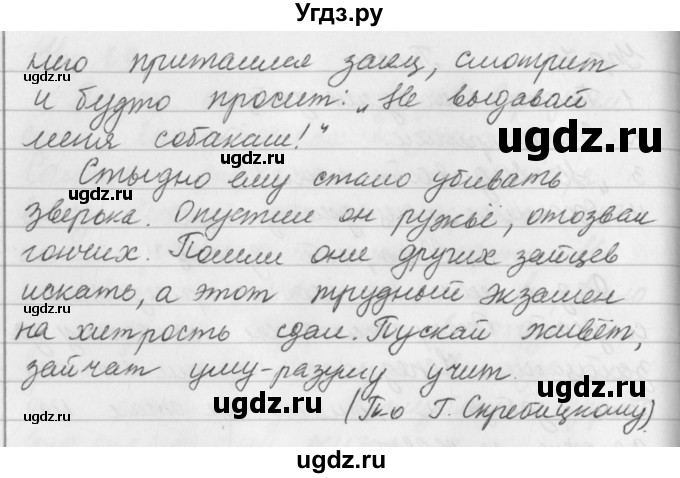 Угдз.ру
него притаился заяц, смотрит
ugdz.ru
ugdz.ru
и будто просит: „Не выдавай
меня собакам!"
ugdz.ru
ugdz.ru
Стыдно ему стало убивать
ugdz.ru
зверька. Опустил он ружьё, отозвал
гончих. Пошли они других зайцев
ugdz.ru
ugdz.ru
искать, а этот трудный экзамен
на хитрость сдал. Пускай живёт,
ugdz.ru
зайчат уму-разуму учит.
ugdz.ru
ugdz.ru
(По Г. Скребицкому)
ugdz.ru
ugdz.ru
ugdz.ru